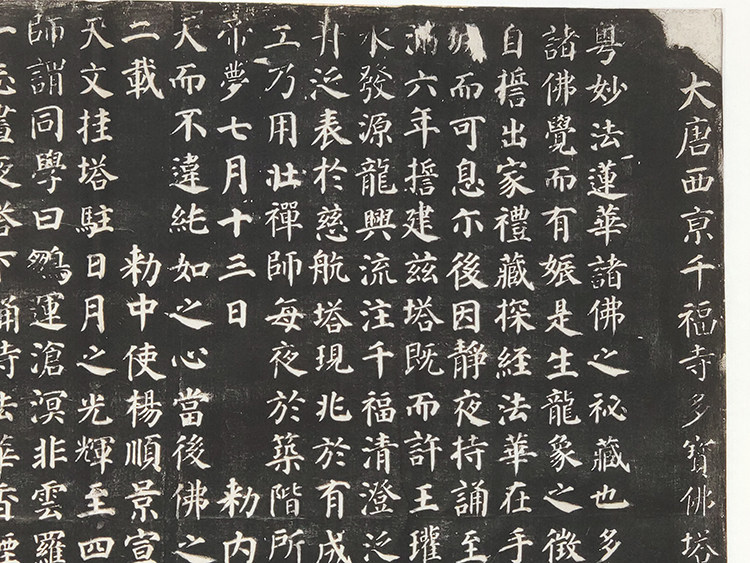 大唐西京千福寺多寶佛塔
粵妙法蓮華諸佛之祕藏也多
諸佛覺而有娠是生龍象之徵
自誓出家禮藏探經法華在手
城而可息尒後因靜夜持誦至
滿六年誓建茲塔既而許王瓘
水發源龍興流注千福清澄泛
月泛表於慈航塔現兆於有成
工乃用壯禪師每夜於築階所
帝夢七月十三日 勑内
天而不違純如之心當後佛之
二載 勑中使楊順景宣
天文挂塔駐日月之光輝至四
師謂同學曰鵬運滄溟非雲羅
晝夜塔下誦持法華香煙